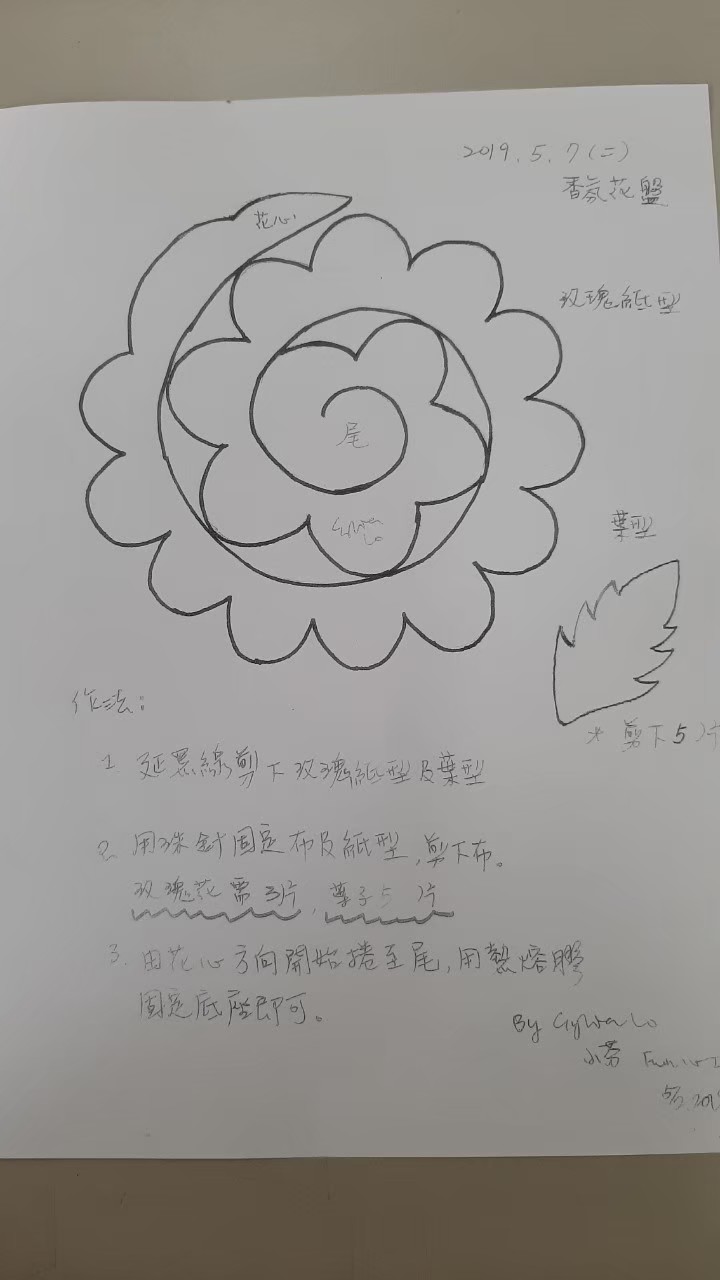 2019.5.7(二)
香氛花盤
花心
玫瑰紙型
尾
Lo
葉型
* 剪下5片
作法:
1. 延黑線剪下玫瑰紙型及葉型
2. 用珠針固定布及紙型,剪下布。
玫瑰花需3片,葉子5片
3. 由花心方向開始捲至尾,用熱熔膠
固定底座即可。
By Lo
小芬